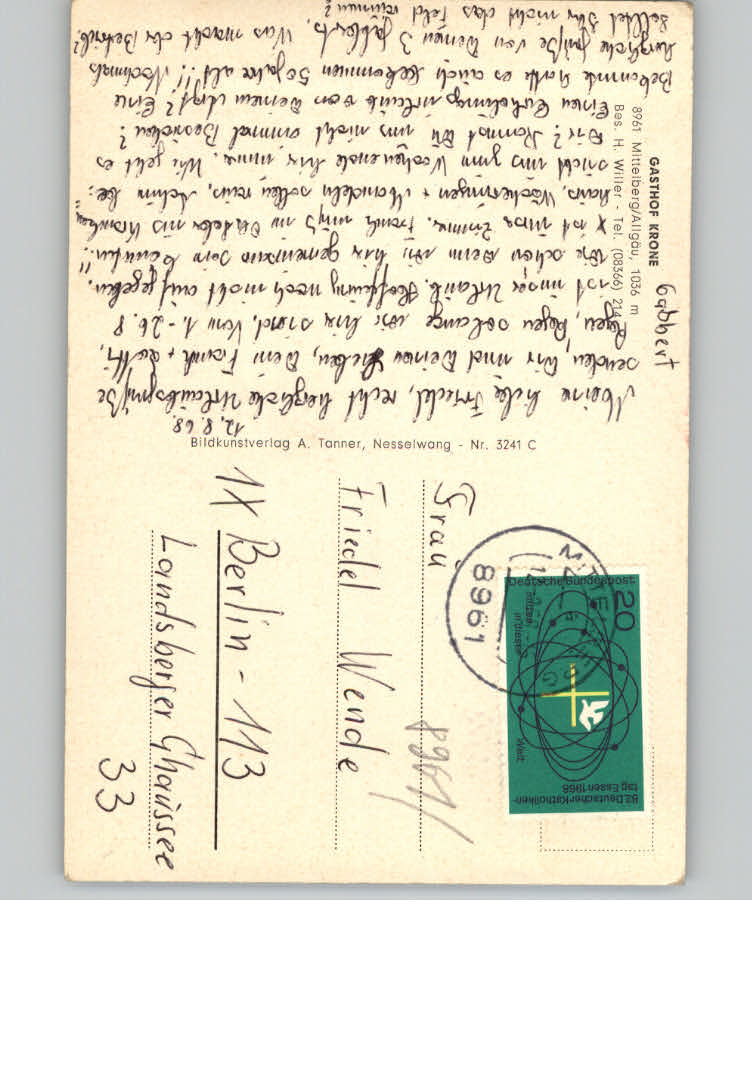 GASTHOF KRONE
8961 Mittelberg/Allgäu, 1036 m
Bes. H. Willer - Tel. (08366) 214
Gabbert
12. 8. 68.
Meine liebe Friedel, recht herzliche Urlaubsgrüße
senden Dir und Deinen Lieben, Dein Frank +
Regen, Regen solange wir hier sind. Vom 1. - 26. 8.
ist unser Urlaub. Hoffnung noch nicht aufgegeben.
Wie schön wenn wir hier gemeinsam sein könnten!!
X ist unser Zimmer. Frank muß im Oktober ins Kranken-
haus, + Mandeln sollen raus, Achim be-
sucht uns zum Wochenende hier immer. Wie geht es
Dir? Kannst Du uns nicht einmal Besuchen?
Einen Erholungsurlaub von Deinem ? Eine
Bekannte hatte es auch bekommen 50 Jahre alt!! Nochmals
herzliche Grüße von Deinen 3 Gabberts. Was macht der Betrieb?
Solltest Du nicht das Feld räumen?
Bildkunstverlag A. Tanner, Nesselwang - Nr. 3241 C
Frau
Friedel Wende
1X Berlin - 113
Landsberger Chaussee
33
8961
MITTELBERG
8961
Deutsche Bundespost
20
mitten
in dieser
Welt
82. Deutscher Katholiken-
tag Essen 1968